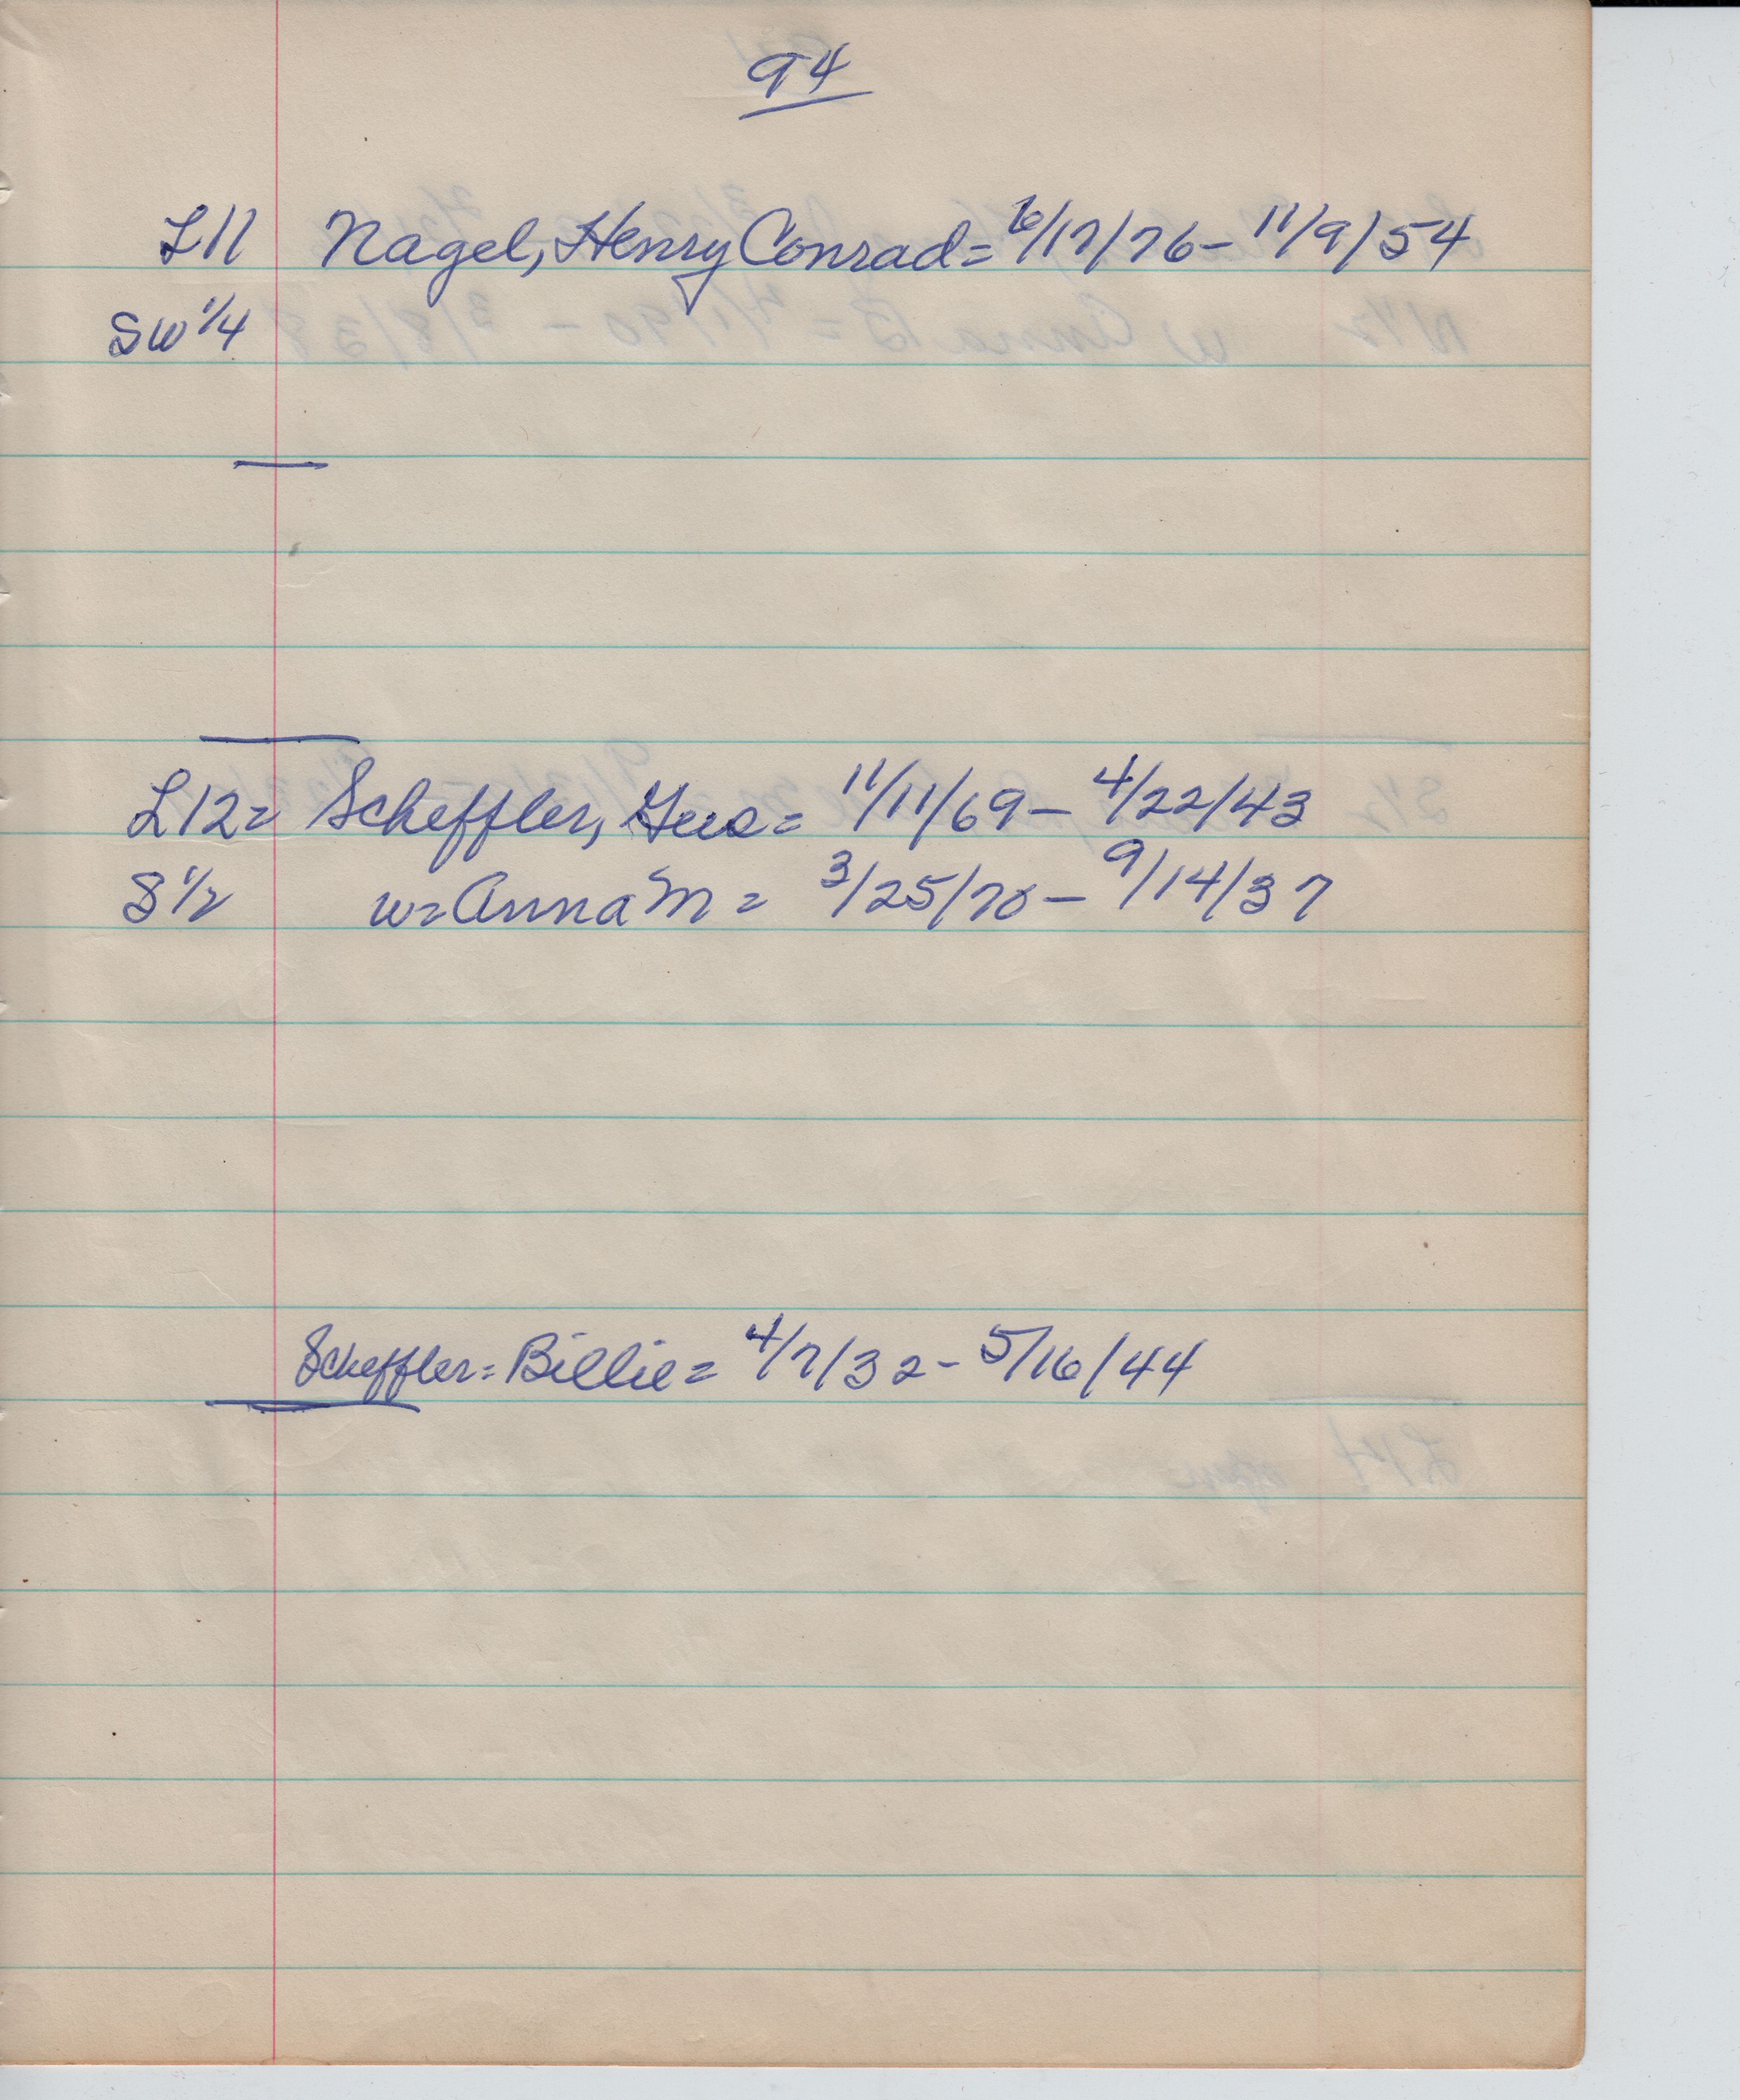 94
L11 Nagel, Henry Conrad = 6/17/76 - 11/9/54
SW 1/4
L12 = Scheffler, Gus = 11/11/69 - 4/22/43
S 1/2 w = Anna M = 3/25/70 - 9/14/37
Scheffler = Billie = 4/7/32 - 5/16/44